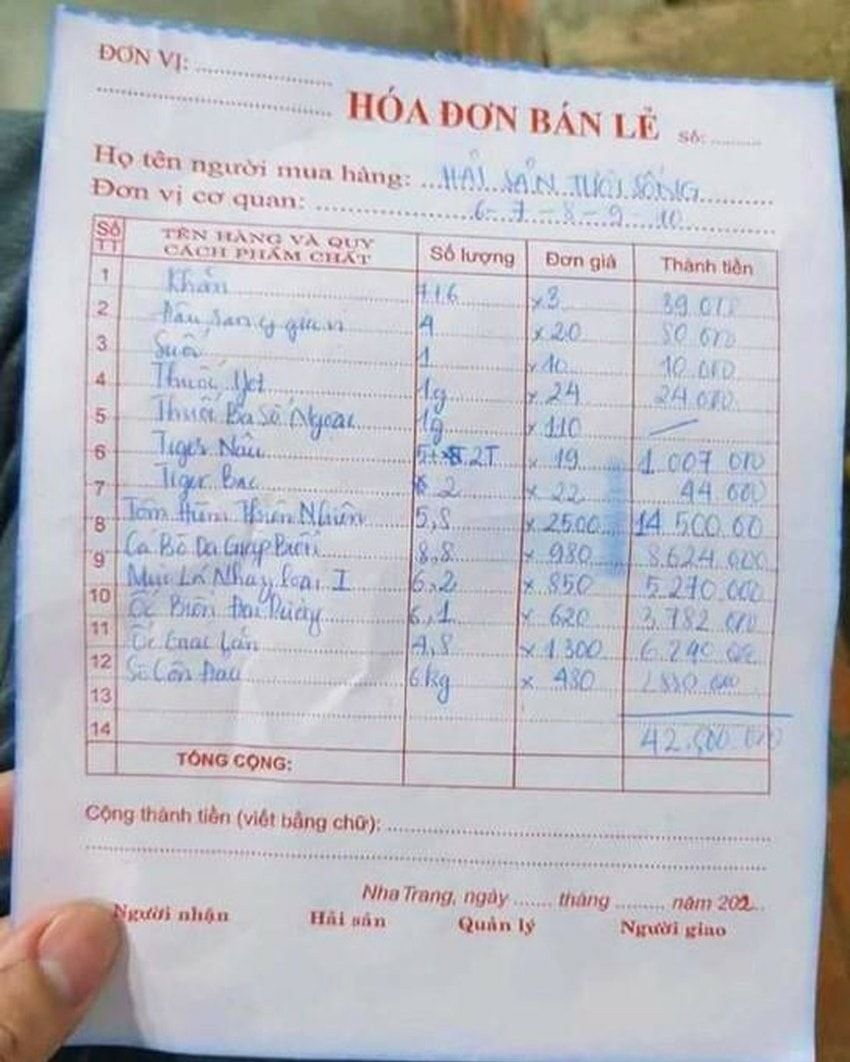 ĐƠN VỊ: ....................
....................
HÓA ĐƠN BÁN LẺ Số: .......
Họ tên người mua hàng: HẢI SẢN TƯƠI SỐNG
Đơn vị cơ quan: 6-7-8-9-10
Số TT TÊN HÀNG VÀ QUY CÁCH PHẨM CHẤT Số lượng Đơn giá Thành tiền
1 Khăn 7+6 x 3 39.000
2 gia vị 4 x 20 80.000
3 Suối 1 x 10 10.000
4 Thuốc Jet 1g x 24 24.000
5 Thuốc Ba Số Ngoại 1g x 110 —
6 Tiger Nâu 2T x 19 1.007.000
7 Tiger Bạc 2 x 22 44.000
8 Tôm Hùm Thiên Nhiên 5,8 x 2500 14.500.00
9 Cá Bò Da Giáp Biển 8.8 x 980 8.624.000
10 Mực Lá Nháy loại I 6,2 x 850 5.270.000
11 Ốc Biển Đại Dương 6,1 x 620 3.782.000
12 Ốc 4,8 x 1300 6.240.00
13 Sò Côn Đảo 6kg x 480 2880.000
14 42.500.000
TỔNG CỘNG:
Cộng thành tiền (viết bằng chữ): ....................
....................
Nha Trang, ngày ....... tháng ......... năm 202...
Người nhận Hải sản Quản lý Người giao